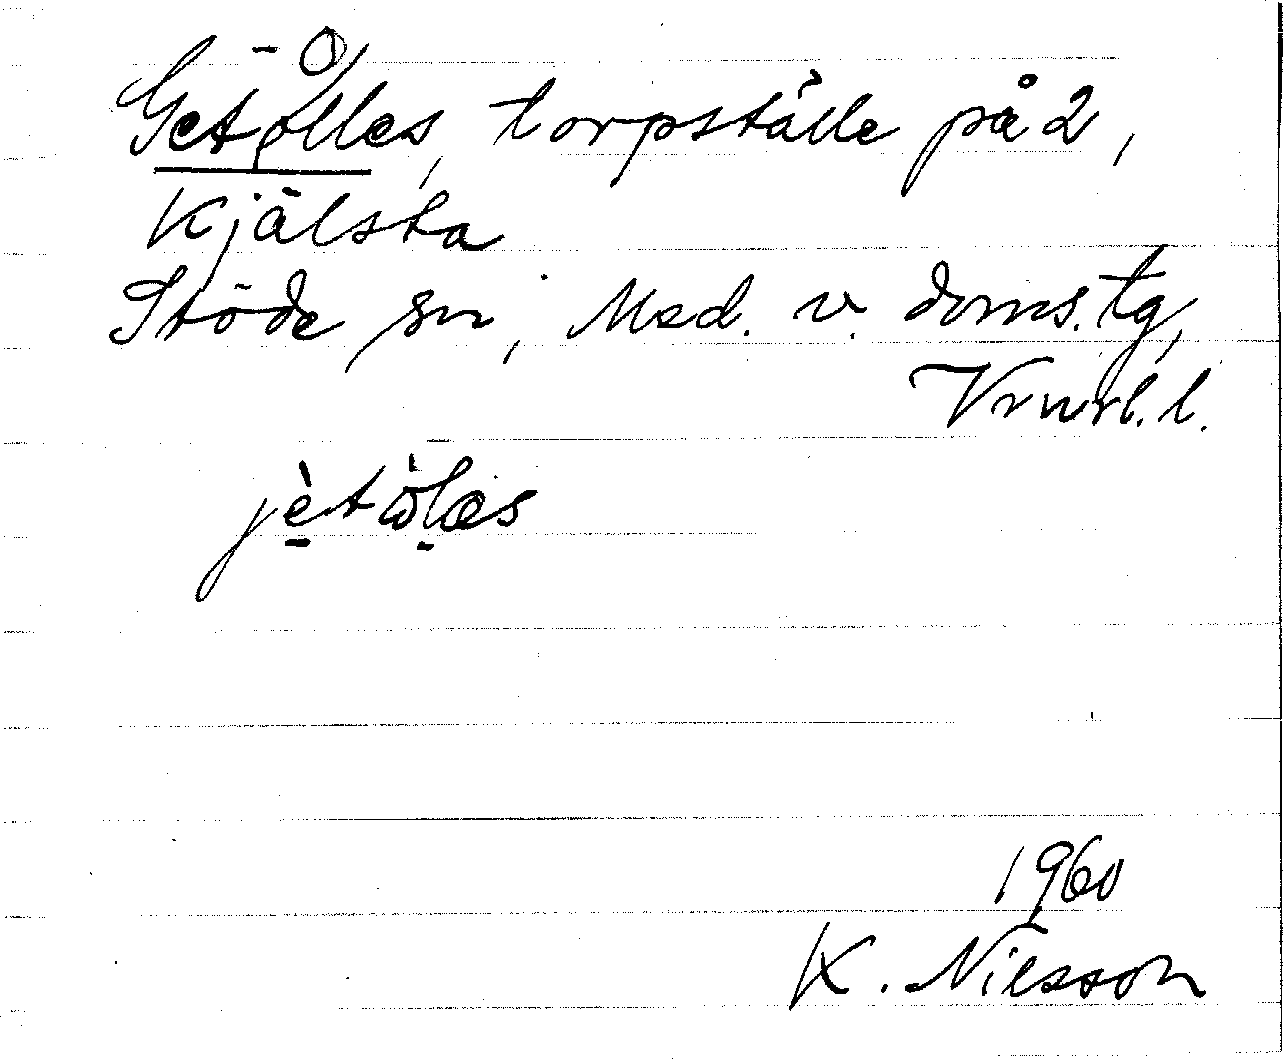 -O
Getolles, torpställe på 2,
Kjälsta
Stöde sn, Med. v. doms. tg,
Vrnrl. l.
jètòlæs
1960
K. Nilsson